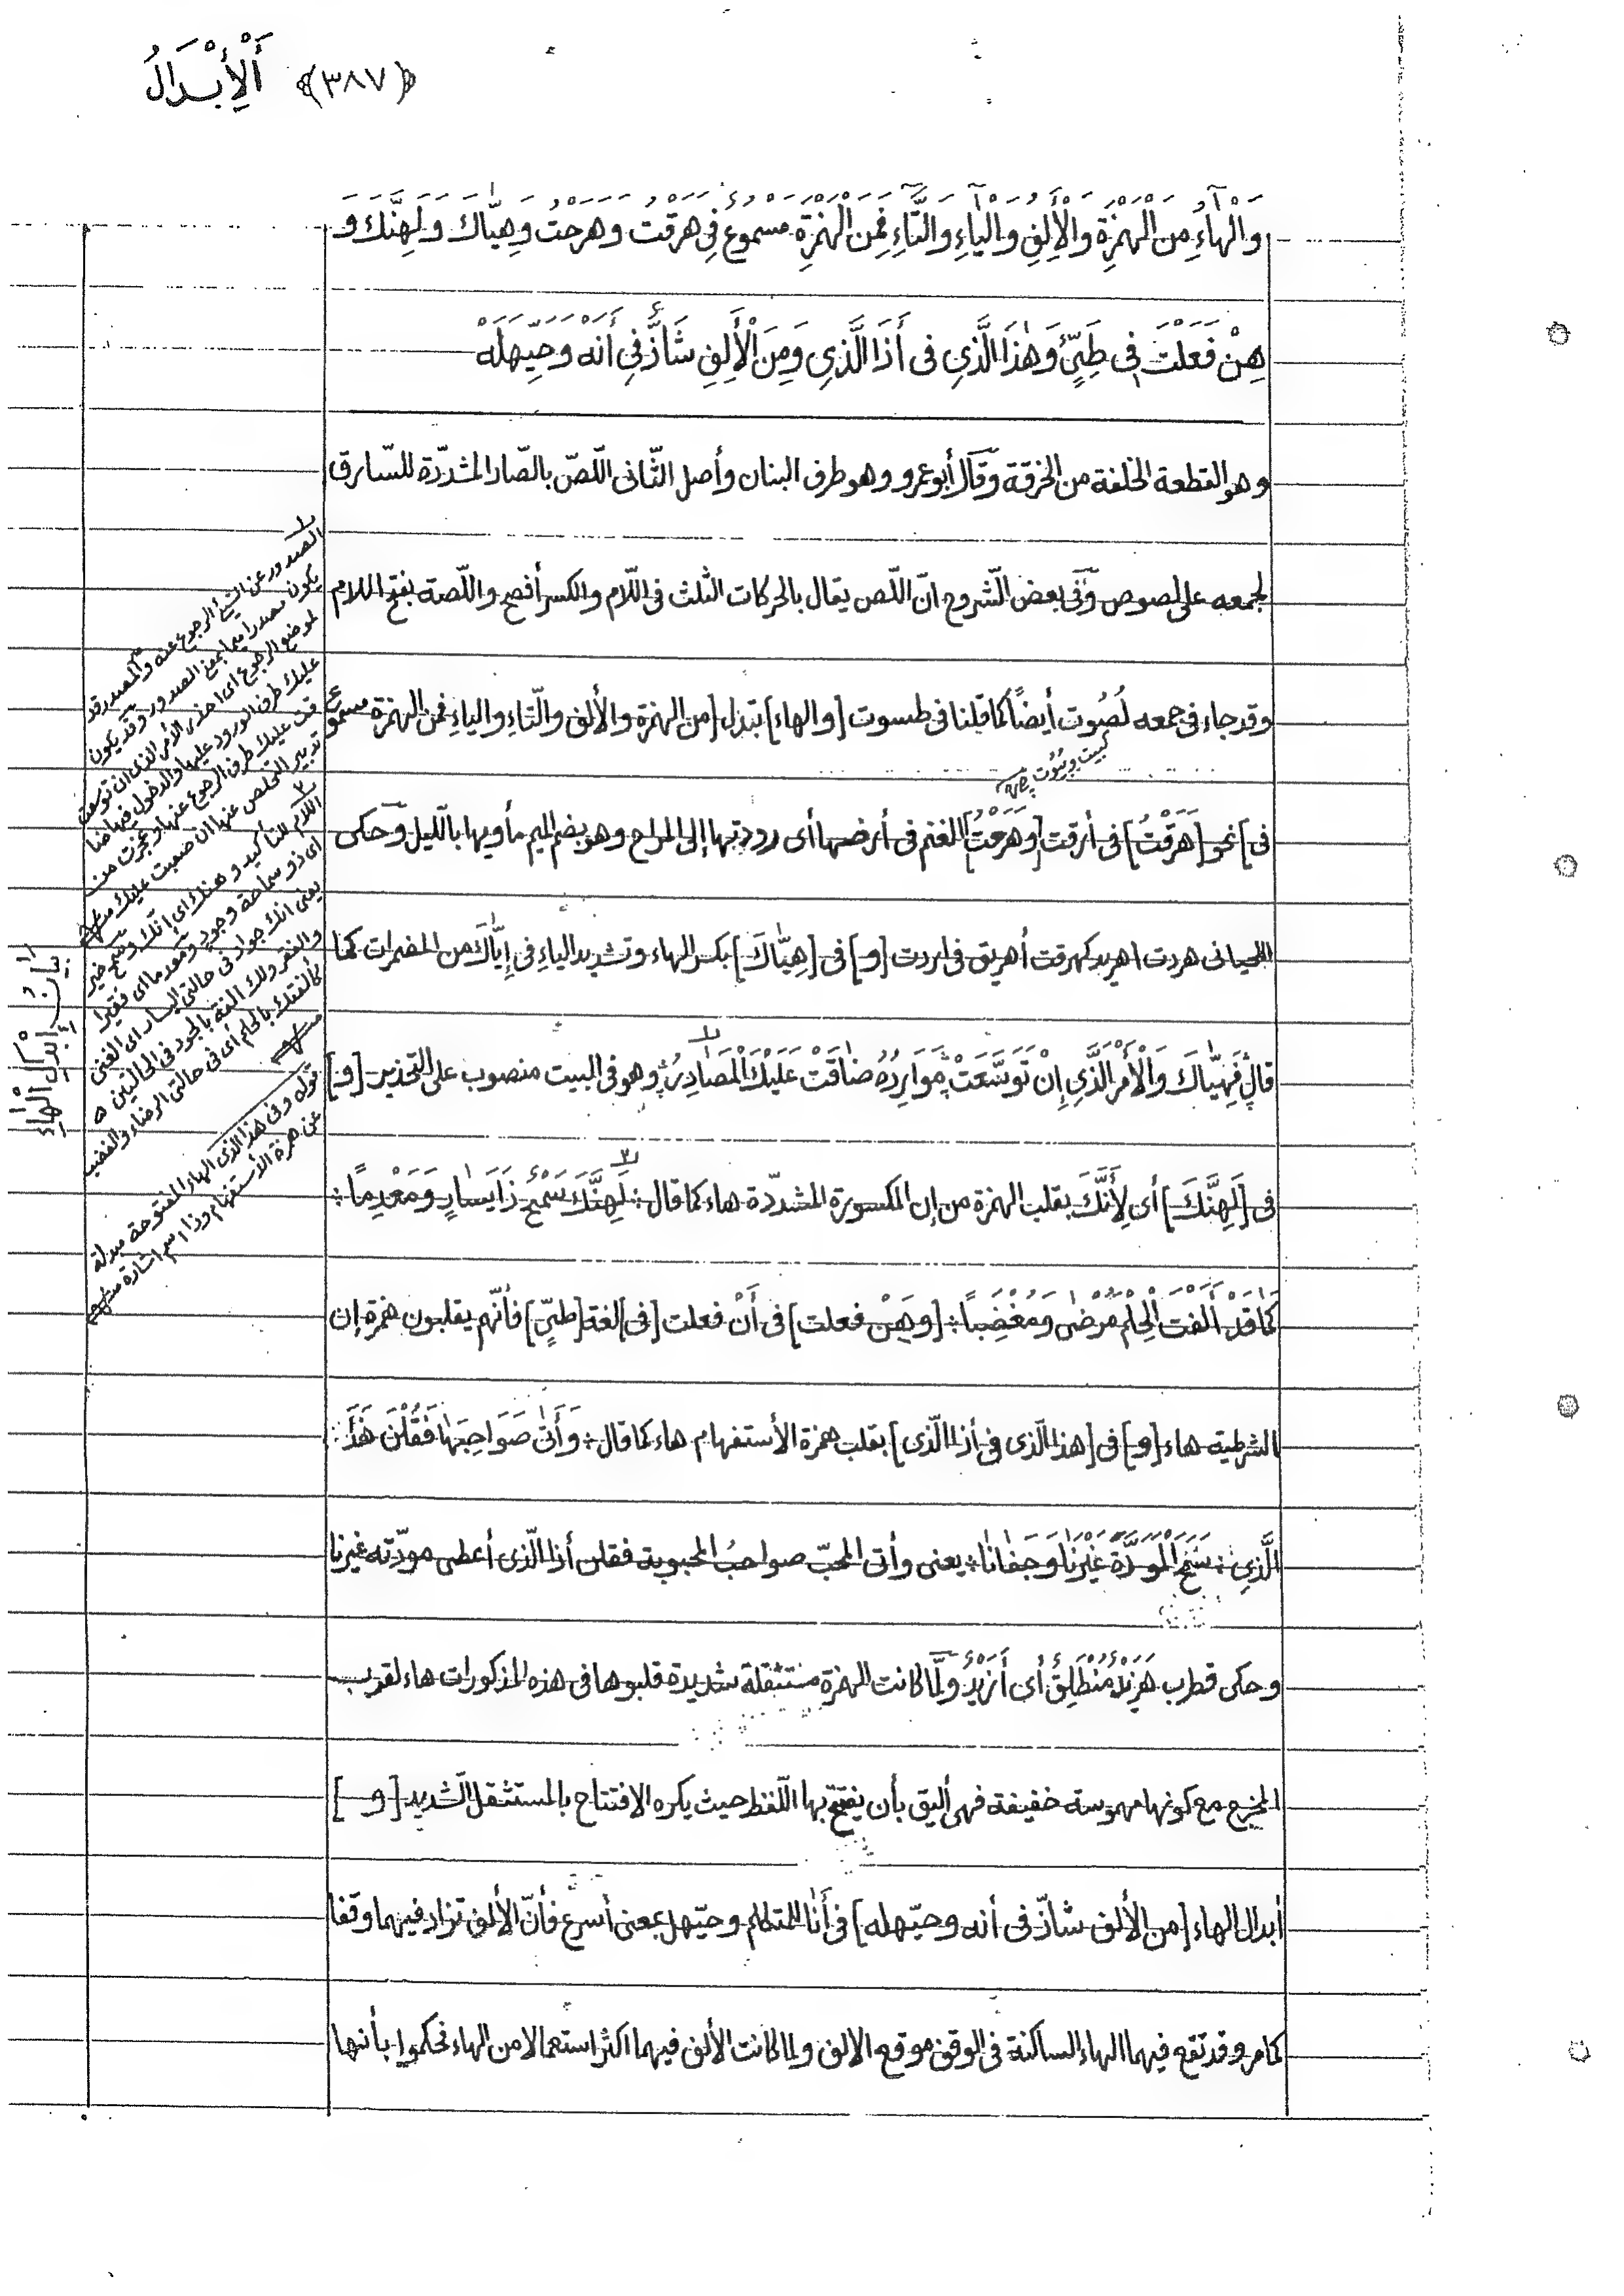 ﴿٣٨٧﴾ أَلْإِبْدَالُ
وَالْهَاءُ مِنَ الْهَمْزَةِ وَالْأَلِفِ وَالْيَاءِ وَالتَّاءِ فَمِنَ الْهَمْزَةِ مَسْمُوعٌ فِي هَرَقْتُ وَهَرَحْتُ وَهِيَّاكَ وَلَهِنَّكَ وَ
هِنْ فَعَلْتَ فِي طَيِّئٍ وَهٰذَا الَّذِي فى أَذَا الَّذِي وَمِنَ الْأَلِفِ شَاذٌّ فِي أَنَهْ وَحَيَّهَلَهْ
وهو القطعة الخلفة من الخرقة وقال أبو عمرو وهو طرف البنان وأصل الثّانى اللّصّ بالصّاد المشدّدة للسّارق
لجمعه على لصوص وفى بعض الشّروح انّ اللّص يقال بالحركات الثلث فى اللّام والكسر أفصح واللّصة بفتح اللام
وقد جاء فى جمعه لُصُوت أيضاً كما قلنا فى طسوت [والهاء] تبدل [من الهمزة والألف والتّاء والياء فمن الهمزة مسموع
كبيت وبيُوت
فى] نحو [هَرَقْتُ] فى أرقت [وهَرَحْتُ] الغنم فى أرحتها أى رددتها إلى المراح وهو بضم الميم مأويها باللّيل وحكى
اللحيانى هردت اهريد كهرقت أهريق فى اردت [و] فى [هِيَّاكَ] بكسر الهاء وتشديد الياء فى إيّاك من المضمرات كما
قال فَهِيَّاكَ وَالْأَمْرَ الَّذِي إِنْ تَوَسَّعَتْ مَوَارِدُهُ ضَاقَتْ عَلَيْكَ الْمَصَادِرُ وهو فى البيت منصوب على التّحذير [و]
فى [لَهِنَّكَ] أى لِأَنَّكَ بقلب الهمزة من إن المكسورة المشدّدة هاء كما قال : لَهِنَّكَ سَمْحٌ ذَا يَسَارٍ وَمُعْدِمًا :
كَمَا قَدْ أَلِفْتَ الْحِلْمَ مُرْضًى وَمُغْضَبًا : [وَهِنْ فعلت] فى أَنْ فعلت [فى] لغة [طيّئ] فأنّهم يقلبون همزة إن
الشرطية هاء [و] فى [هذا الّذى فى أذا الّذى] بقلب همزة الأستفهام هاء كما قال : وَأَتَى صَوَاحِبَهَا فَقُلْنَ هَذَا :
الَّذِي : مَنَحَ الْمَوَدَّةَ غَيْرَنَا وَجَفَانَا : يعنى وأتى المحبّ صواحبُ المحبوبة فقلن أذا الّذى أعطى مودّته غيرنا
وحكى قطرب هَزَيْدٌ مُنْطَلِقٌ أى أَزَيْدٌ ولمّا كانت الهمزة مستثقلة شديدة قلبوها فى هذه المذكورات هاء لقرب
المخرج مع كونها مهموسة خفيفة فهى أليق بأن يفتتح بها اللّفظ حيث يكره الافتتاح بالمستثقل الشديد [و]
أبدال الهاء [من الألف شاذّ فى أنه وحيّهله] فى أَنَا للمتكلم وحيّهل بمعنى أسرع فأنّ الألف تزاد فيهما وقفا
كما مر وقد تقع فيهما الهاء الساكنة فى الوقف موقع الالف ولما كانت الألف فيهما اكثر استعمالا من الهاء فحكموا بأنها
الصدور عن الشئ الرجوع عنه والمصدر قد
يكون مصدرا ميميا بمعنى الصدور وقد يكون
لموضع الرجوع اى احذر الأمر الذى ان توسعت
عليك طرق الورود عليها والدخول فيها ضا
قت عليك طرق الرجوع عنها وعجزت من
تدبير التخلص عنها ان صعبت عليك
اللام للتأكيد وهنك اى انّك وسمح خبر
اى ذو سماحة وجود ومعدما اى فقيرا
يعنى انك جواد فى حالتى اليسار اى الغنى
والفقر ولك الفة بالجود فى الحالتين
كألفتك بالحلم أى فى حالتى الرضاء والغضب
قوله وفى هذا الذى الهاء المفتوحة مبدلة
عن همزة الأستفهام وذا اسم اشارة
بيان إبدال الْهاء